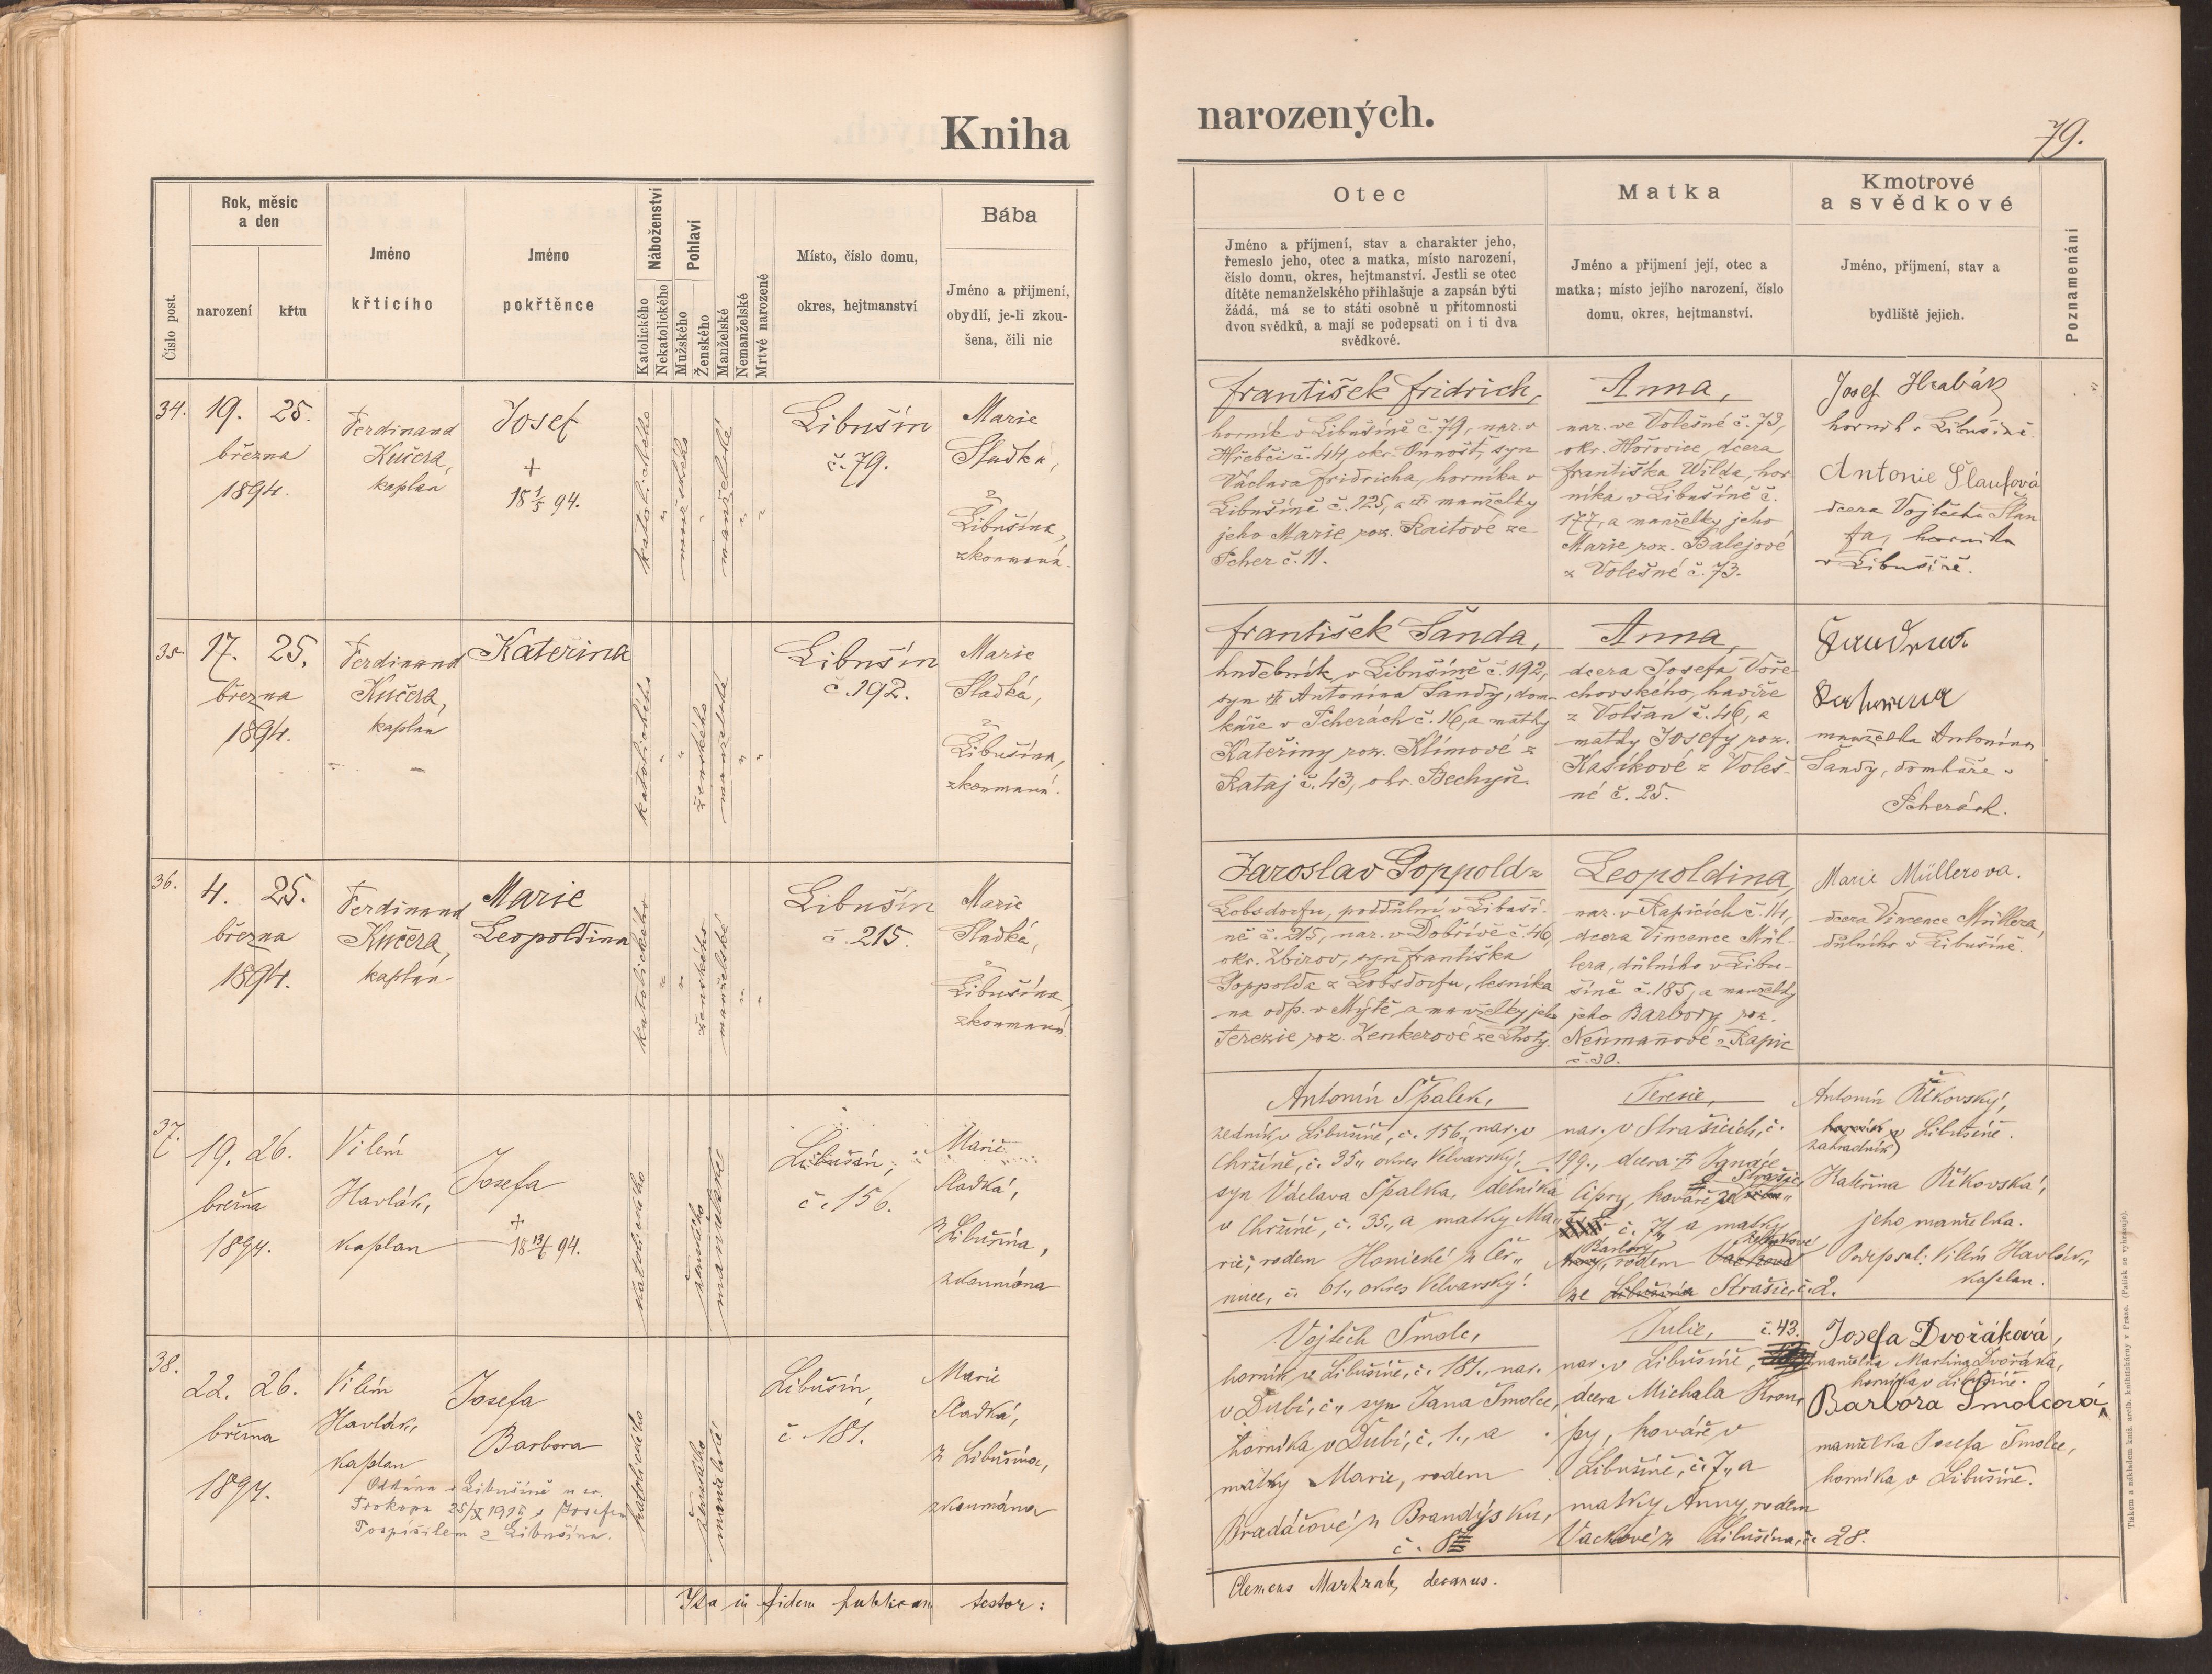 Kniha
narozených.
79.
Číslo post.
Rok, měsíc
a den
narození
křtu
Jméno
křtícího
Jméno
pokřtěnce
Náboženství
Katolického
Nekatolického
Pohlaví
Mužského
Ženského
Manželské
Nemanželské
Mrtvě narozené
Místo, číslo domu,
okres, hejtmanství
Bába
Jméno a přijmení,
obydlí, je-li zkou-
šena, čili nic
Otec
Jméno a příjmení, stav a charakter jeho,
řemeslo jeho, otec a matka, místo narození,
číslo domu, okres, hejtmanství. Jestli se otec
dítěte nemanželského přihlašuje a zapsán býti
žádá, má se to státi osobně u přítomnosti
dvou svědků, a mají se podepsati on i ti dva
svědkové.
Matka
Jméno a přijmení její, otec a
matka; místo jejího narození, číslo
domu, okres, hejtmanství.
Kmotrové
a svědkové
Jméno, přijmení, stav a
bydliště jejich.
Poznamenání
34.
19. 25.
března
1894.
Ferdinand
Kučera,
kaplan
Josef
+
18 1/5 94.
katolického
mužského
manželské
Libušín
č. 79.
Marie
Sladká,
z
Libušína,
zkoumaná.
František Fridrich,
horník v Libušíně č. 79, nar. v
Hřebči č. 44, okr. Unhošť, syn
Václava Fridricha, horníka v
Libušíně č. 125, a manželky
jeho Marie roz. Raitové ze
Pcher č. 11.
Anna,
nar. ve Volešné č. 73,
okr. Hořovice, dcera
Františka Wilda, hor-
níka v Libušíně č.
177, a manželky jeho
Marie roz. Balejové
z Volešné č. 73.
Josef Hrabák
horník v Libušíně.
Antonie Šlaufová
dcera Vojtěcha Šlau
fa, horníka
v Libušíně.
35.
17. 25.
března
1894.
Ferdinand
Kučera,
kaplan
Kateřina
katolického
ženského
manželské
Libušín
č. 192.
Marie
Sladká,
z
Libušína,
zkoumaná.
František Šanda,
hudebník v Libušíně č. 192,
syn Antonína Šandy, dom-
káře v Pcherách č. 16, a matky
Kateřiny roz. Klímové z
Rataj č. 43, okr. Bechyň.
Anna,
dcera Josefa Voře-
chovského, havíře
z Volšan č. 46, a
matky Josefy roz.
Kašíkové z Voleš-
né č. 25.
manželka Antonína
Šandy, domkáře v
Pcherách.
36.
4. 25.
března
1894.
Ferdinand
Kučera,
kaplan
Marie
Leopoldina
katolického
ženského
manželské
Libušín
č. 215.
Marie
Sladká,
z
Libušína,
zkoumaná.
Jaroslav Poppold z
Lobsdorfu, poddůlní v Libuší-
ně č. 215, nar. v Dobřívě č. 46,
okr. Zbirov, syn Františka
Poppolda z Lobsdorfu, lesníka
na odp. v Mýtě, a manželky jeho
Terezie roz. Zenkerové ze Lhoty.
Leopoldina,
nar. v Rapicích č. 14,
dcera Vincence Mül-
lera, důlního v Libu-
šíně č. 185, a manželky
jeho Barbory roz.
Neumanové z Rapic
č. 30.
Marie Müllerova.
dcera Vincence Müllera,
důlního v Libušíně.
37.
19. 26.
března
1894.
Vilém
Havlák,
kaplan
Josefa
+
18 13/6 94.
katolického
ženského
manželské
Libušín,
č. 156.
Marie
Sladká,
z Libušína,
zkoumána
Antonín Špalek,
zedník v Libušíně, č. 156., nar. v
Chržíně, č. 35., okres Velvarský,
syn Václava Špalka, dělníka
v Chržíně, č. 35., a matky Ma-
rie, rodem Homické z Čer-
nuce, č. 61., okres Velvarský.
Terezie,
nar. v Strašicích, č.
199., dcera Ignáce
Cipry, kováře ze Strašic,
č. 74 a matky
Barbory, rodem
ze Libušína Strašic, č. 2.
Antonín Říkovský,
horník v Libušíně.
zahradník
Kateřina Říkovská,
jeho manželka.
Podepsal: Vilém Havlák,
kaplan.
38.
22. 26.
března
1894.
Vilém
Havlák,
kaplan
Josefa
Barbora
Oddána v Libušíně u sv.
Prokopa 25/X 1915 s Josefem
Pospíšilem z Libušína.
katolického
ženského
manželské
Libušín,
č. 181.
Marie
Sladká,
z Libušína,
zkoumána
Vojtěch Šmolc,
horník ve Libušíně, č. 181., nar.
v Dubí, č., syn Jana Šmolce,
horníka v Dubí, č. 1., a
matky Marie, rodem
Bradáčové z Brandýsku,
č. 8
Julie, č. 43.
nar. v Libušíně,
dcera Michala Kron-
py, kováře v
Libušíně, č. 7., a
matky Anny, rodem
Vackové z Libušína, č. 28.
Josefa Dvořáková,
manželka Martina Dvořáka,
horníka v Libušíně.
Barbora Šmolcová,
manželka Josefa Šmolce,
horníka v Libušíně.
Ita in fidem publicam testor:
Clemens Markrab, decanus.
Tiskem a nákladem kníž. arcib. knihtiskárny v Praze. (Patisk se vyhrazuje).